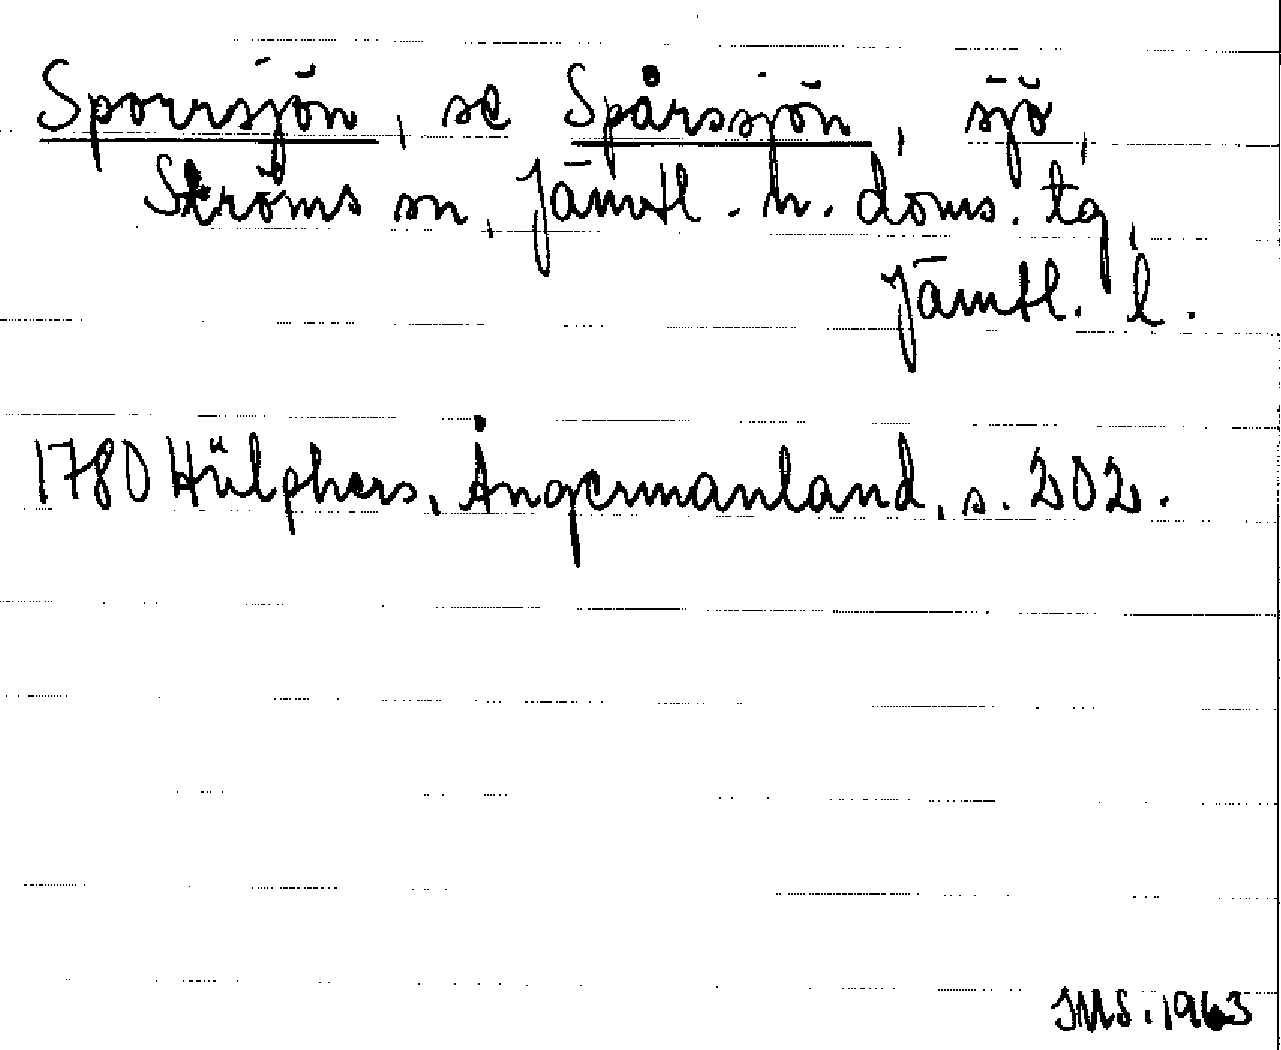 Sporrsjön, se Spårssjön, sjö,
Ströms sn, Jämtl. n. doms. tg,
Jämtl. l.
1780 Hülphers, Ångermanland, s. 202.
JMS. 1963